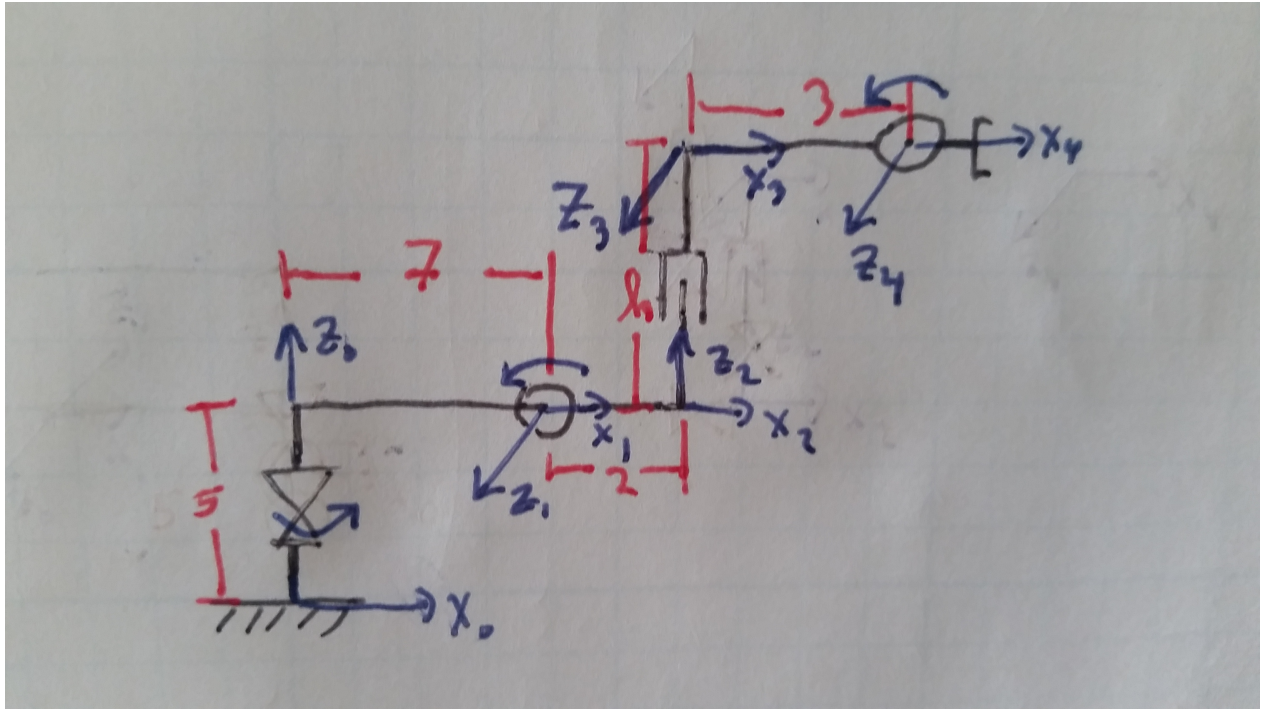 3
X₄
X₃
Z₃
Z₄
7
Z₀
Z₂
X₁
X₂
2
Z₁
5
X₀